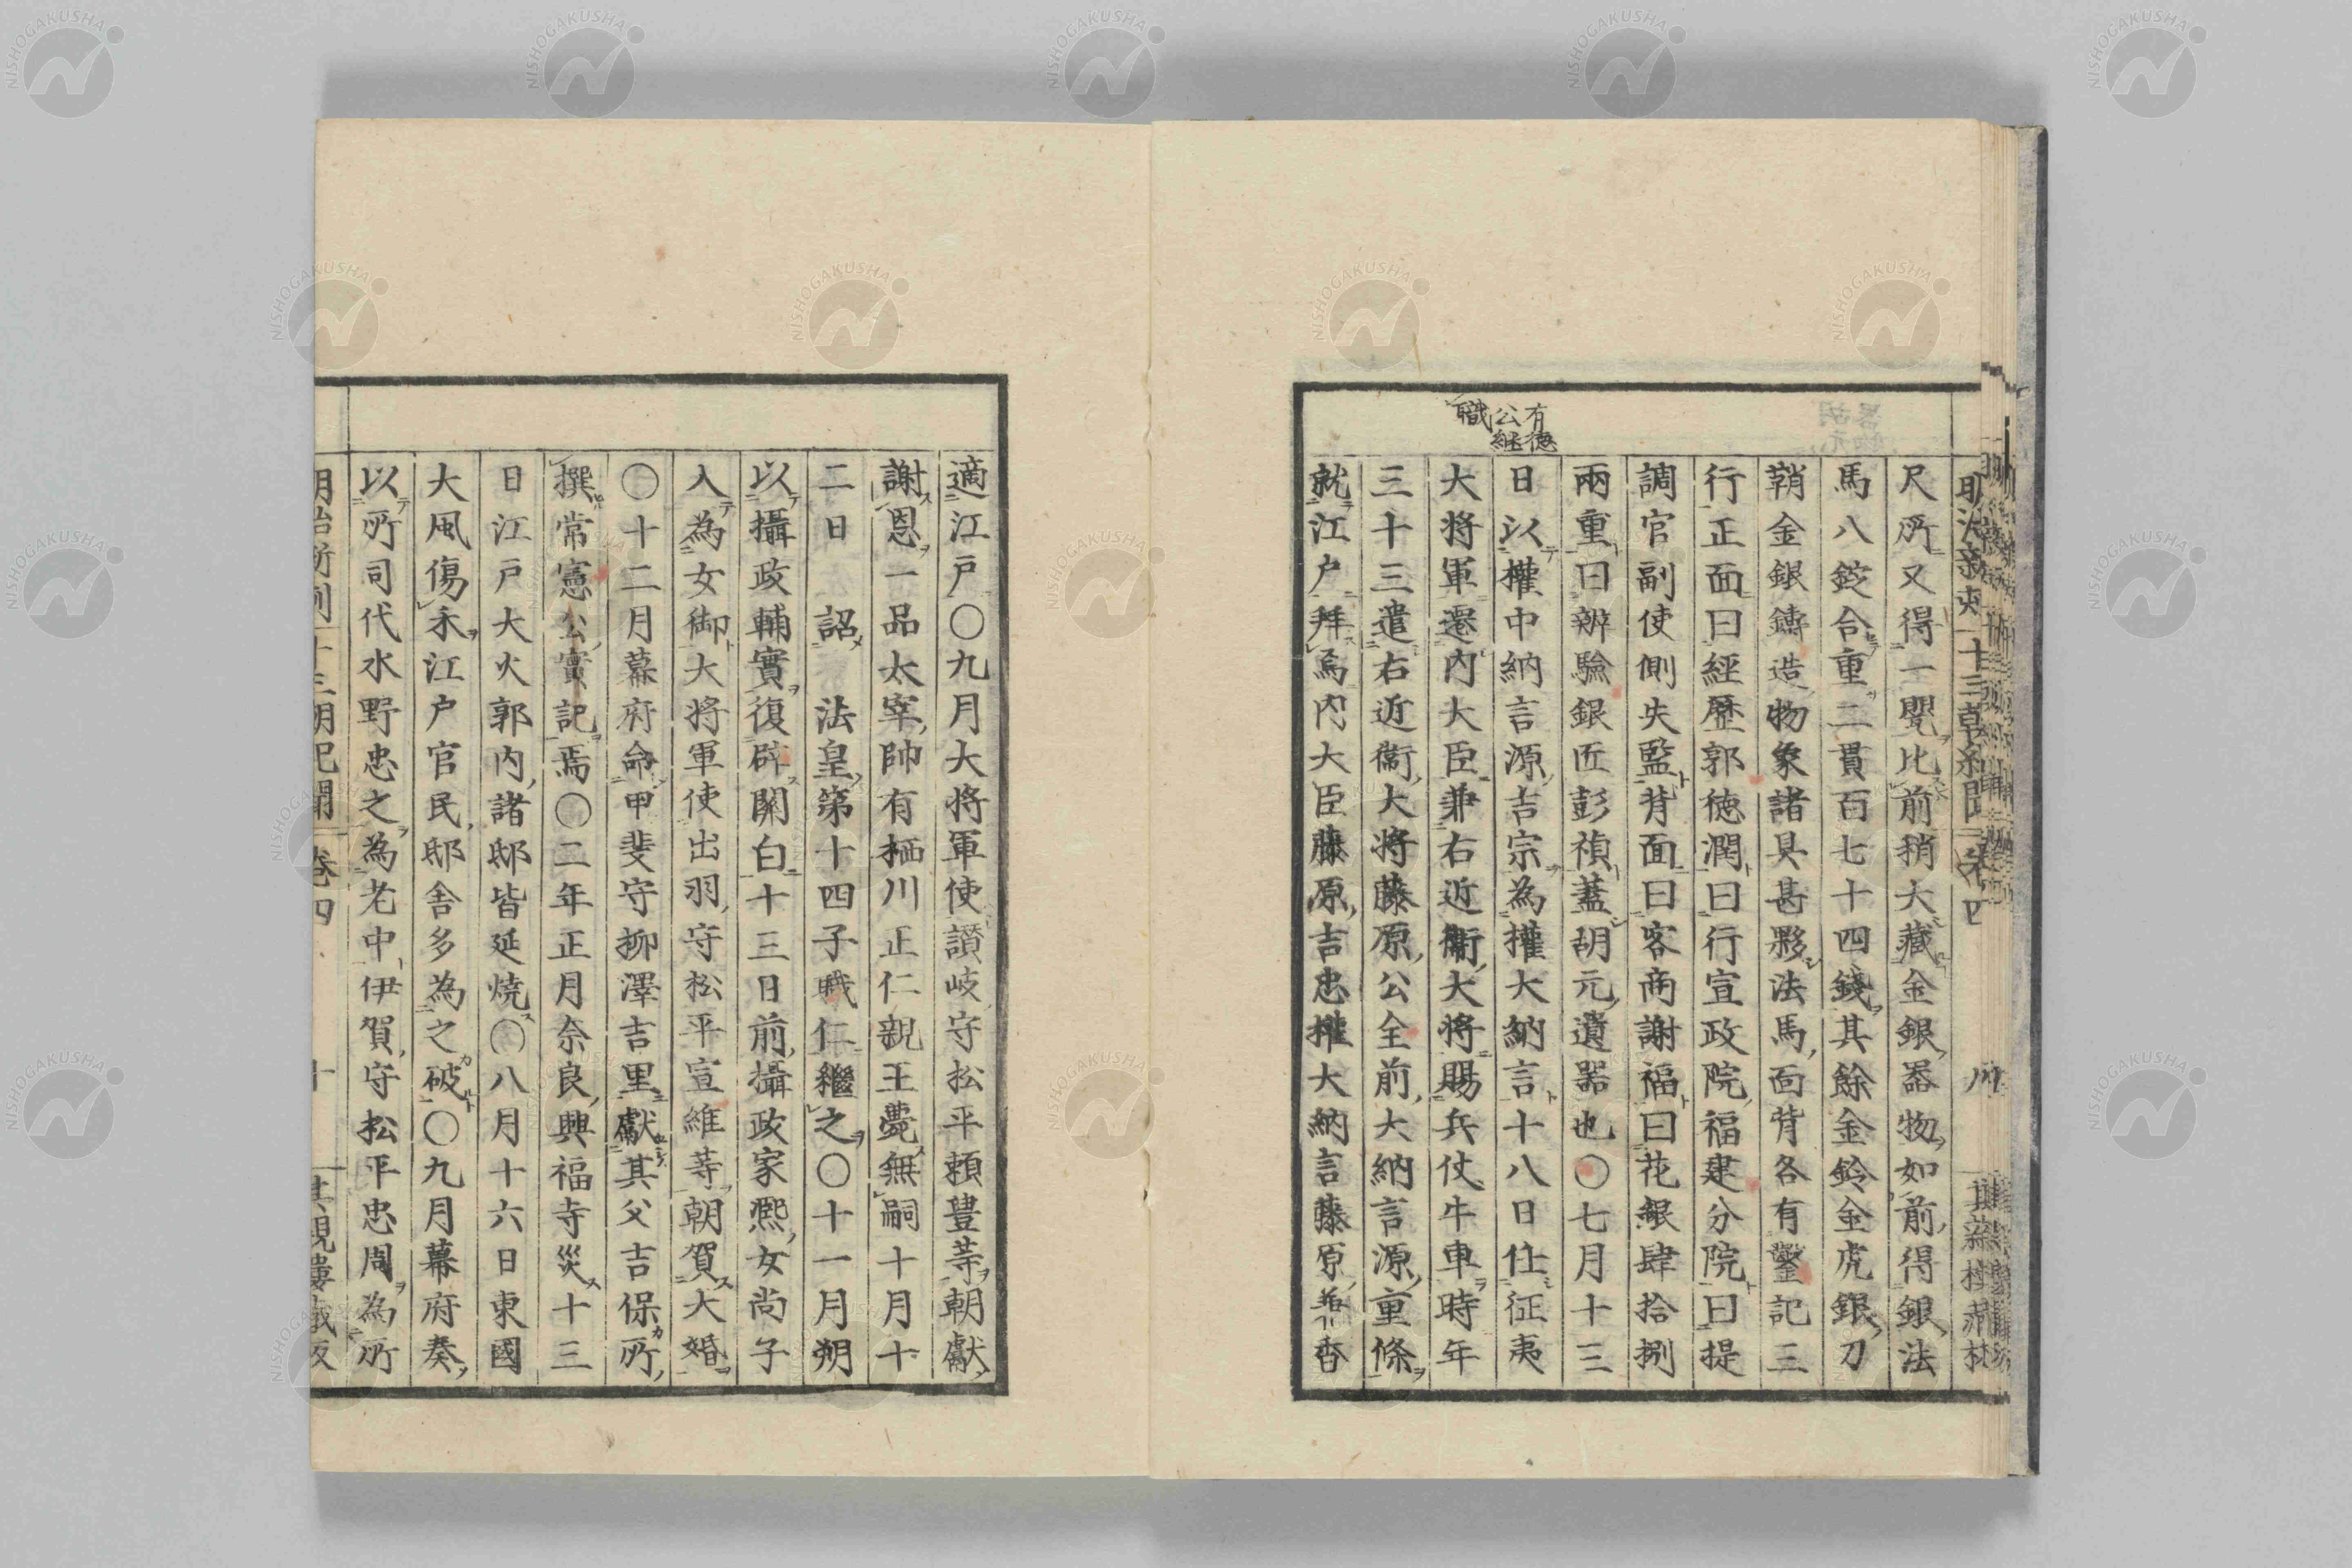 尺所又得一甖比前稍大藏金銀器物如前得銀法
馬八錠合重二貫百七十四錢其餘金鈴金虎銀刀
鞘金銀鑄造物象諸具甚夥法馬面背各有鑿記三
行正面曰經歷郭德潤曰行宣政院福建分院曰提
調官副使側失監背面曰客商謝福曰花銀肆拾捌
兩重曰辨驗銀匠彭禎蓋胡元遺器也〇七月十三
有德
公繼
職
日以權中納言源吉宗為權大納言十八日仕征夷
大將軍遷內大臣兼右近衞大將賜兵仗牛車時年
三十三遣右近衞大將藤原公全前大納言源重條
就江戶拜焉內大臣藤原吉忠權大納言藤原香
適江戶〇九月大將軍使讚岐守松平頼豊等朝獻
謝恩一品太宰帥有栖川正仁親王薨無嗣十月十
二日 詔 法皇第十四子職仁繼之〇十一月朔
以攝政輔實復辟關白十三日前攝政家熙女尚子
入為女御大將軍使出羽守松平宣維等朝賀大婚
〇十二月幕府命甲斐守柳澤吉里獻其父吉保所
撰常憲公實記焉〇二年正月奈良興福寺災十三
日江戶大火郭內諸邸皆延燒〇八月十六日東國
大風傷禾江戶官民邸舍多為之破〇九月幕府奏
以所司代水野忠之為老中伊賀守松平忠周為所